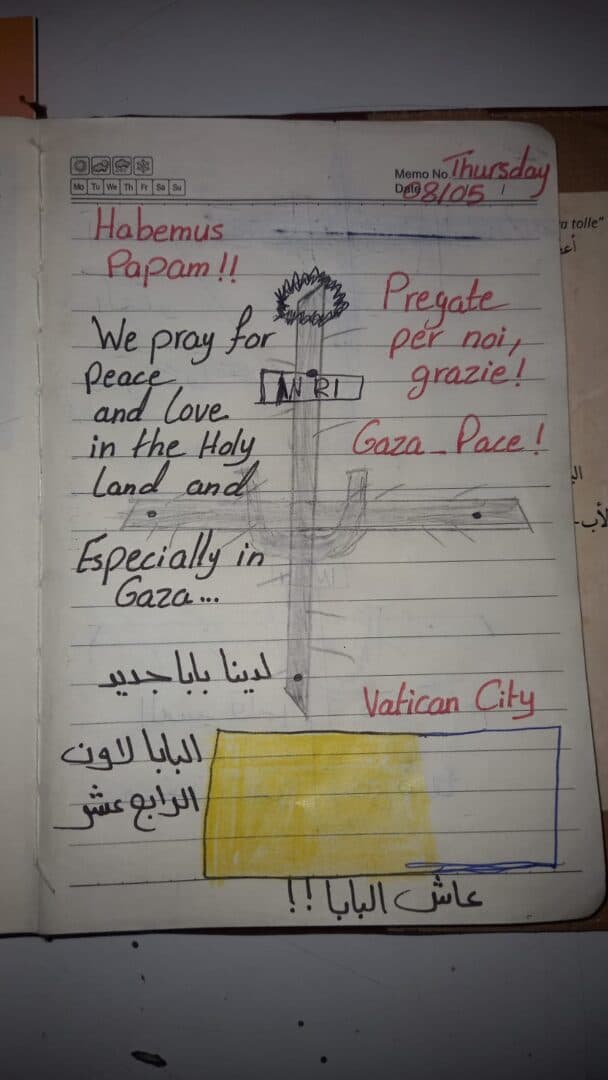 Memo No. Thursday
Mo Tu We Th Fr Sa Su
Date 08/05 /
Habemus
Papam!!
We pray for
peace
and love
in the Holy
Land and
Especially in
Gaza...
INRI
Pregate
per noi,
grazie!
Gaza_Pace!
لدينا بابا جديد
Vatican City
البابا لاون
الرابع عشر
عاش البابا!!
a tolle"